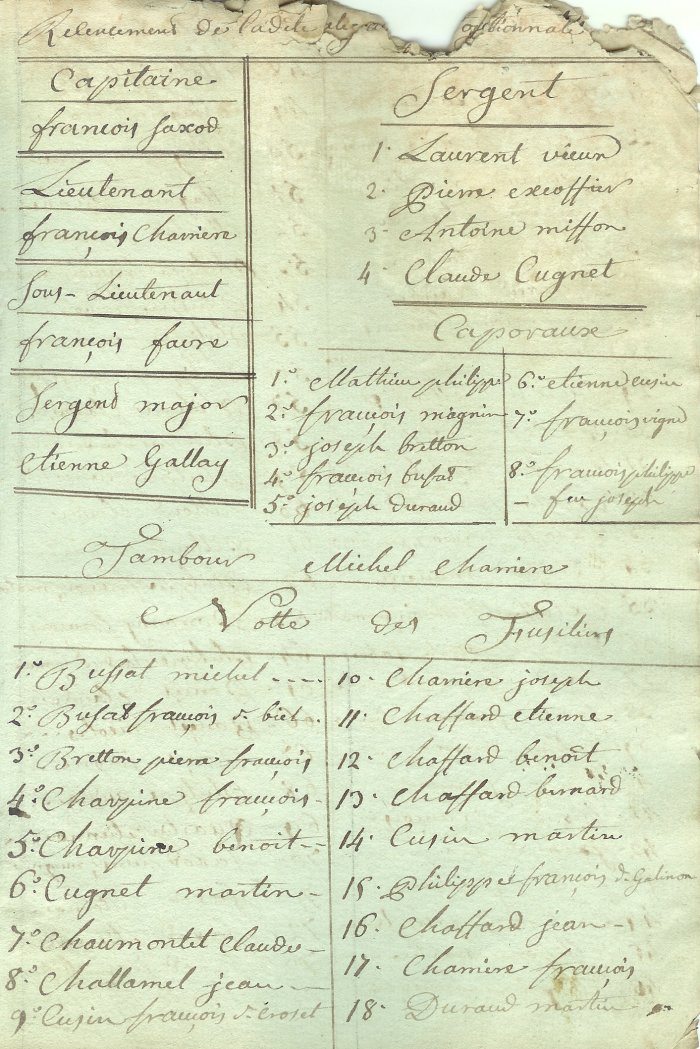 Recencement de ladite
Capitaine
françois Saxod
Lieutenant
françois Charriere
Sous-Lieutenant
françois favre
Sergend major
etienne Gallay
Sergent
1. Laurent vieux
2. Pierre excoffier
3. Antoine miffon
4. Claude Cugnet
Caporaux
1.° Mathieu philippe
2.° françois magnin
3.° joseph bretton
4.° françois bufat
5.° joseph durand
6.° etienne cusin
7.° françois vigne
8.° françois philippe
- feu joseph
Tambour Michel Charriere
Notte des Fusiliers
1.° Bussat michel - - - -
2.° Bufat françois d. biel .
3.° Bretton pierre françois
4.° Charpine françois -
5.° Charpine benoit - -
6.° Cugnet martin -
7.° Chaumontet Claude -
8.° Challamel jean -
9.° Cusin françois d. Croset
10. Charriere joseph
11. Chaffard etienne
12. Chaffard benoit
13. Chaffard bernard
14. Cusin martin
15. Philippe françois d. Galinon
16. Chaffard jean -
17. Charriere françois
18. Durand martin